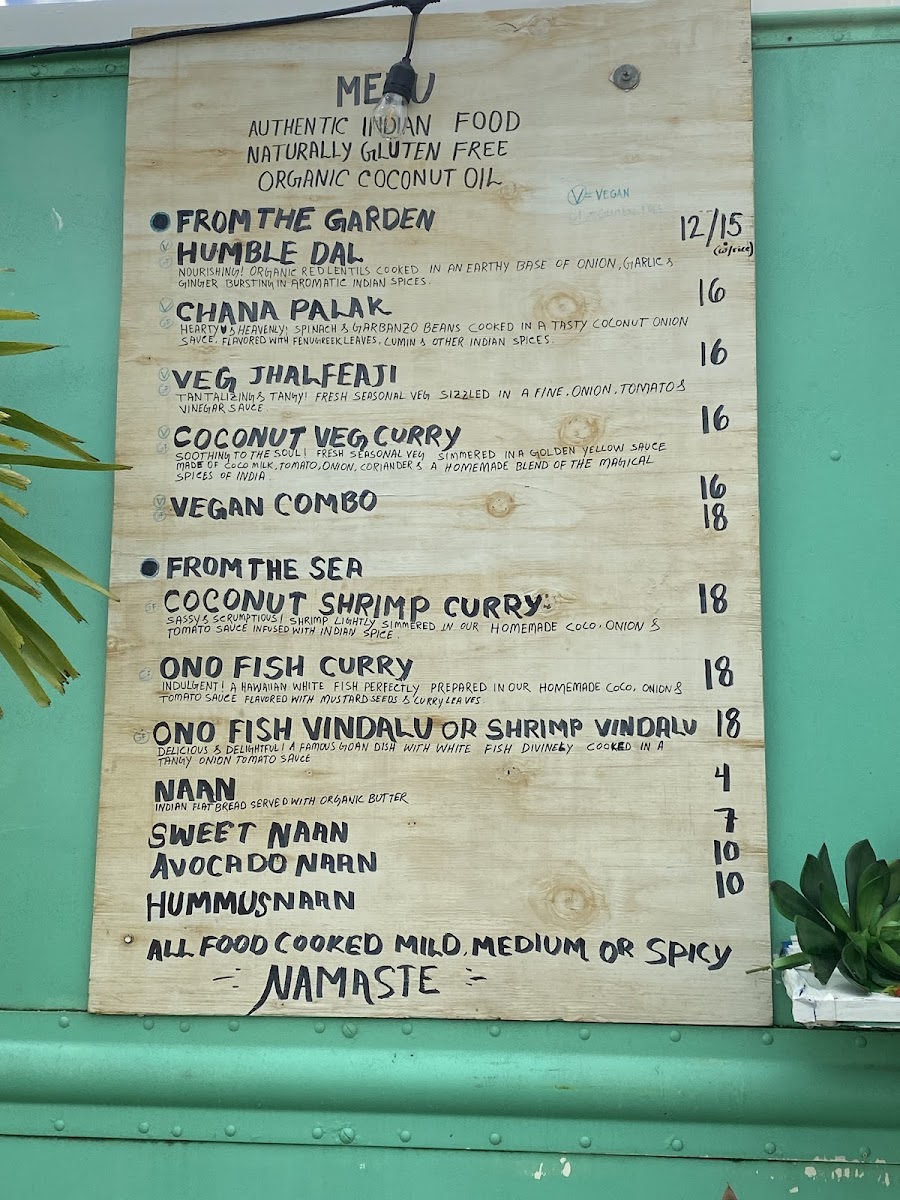 MENU
AUTHENTIC INDIAN FOOD
NATURALLY GLUTEN FREE
ORGANIC COCONUT OIL
V = VEGAN
FROM THE GARDEN 12/15
HUMBLE DAL (w/rice)
NOURISHING! ORGANIC RED LENTILS COOKED IN AN EARTHY BASE OF ONION, GARLIC &
GINGER BURSTING IN AROMATIC INDIAN SPICES.
16
CHANA PALAK
HEARTY ♥ & HEAVENLY! SPINACH & GARBANZO BEANS COOKED IN A TASTY COLONUT ONION
SAUCE, FLAVORED WITH FENUGREEK LEAVES, CUMIN & OTHER INDIAN SPICES.
16
VEG JHALFEAJI
TANTALIZING & TANGY! FRESH SEASONAL VEG SIZZLED IN A FINE, ONION, TOMATO &
VINEGAR SAUCE.
16
COCONUT VEG CURRY
SOOTHING TO THE SOUL! FRESH SEASONAL VEG SIMMERED IN A GOLDEN YELLOW SAUCE
MADE OF COCO MILK, TOMATO, ONION, CORIANDER & A HOMEMADE BLEND OF THE MAGICAL
SPICES OF INDIA.
16
VEGAN COMBO 18
FROM THE SEA
GF COCONUT SHRIMP CURRY 18
SASSY & SCRUMPTIOUS! SHRIMP LIGHTLY SIMMERED IN OUR HOMEMADE COCO, ONION &
TOMATO SAUCE INFUSED WITH INDIAN SPICE.
GF ONO FISH CURRY 18
INDULGENT! A HAWAIIAN WHITE FISH PERFECTLY PREPARED IN OUR HOMEMADE COCO, ONION &
TOMATO SAUCE FLAVORED WITH MUSTARD SEEDS & CURRY LEAVES
GF ONO FISH VINDALU OR SHRIMP VINDALU 18
DELICIOUS & DELIGHTFUL! A FAMOUS GOAN DISH WITH WHITE FISH DIVINELY COOKED IN A
TANGY ONION TOMATO SAUCE
NAAN 4
INDIAN FLAT BREAD SERVED WITH ORGANIC BUTTER
SWEET NAAN 7
AVOCADO NAAN 10
HUMMUS NAAN 10
ALL FOOD COOKED MILD, MEDIUM OR SPICY
NAMASTE